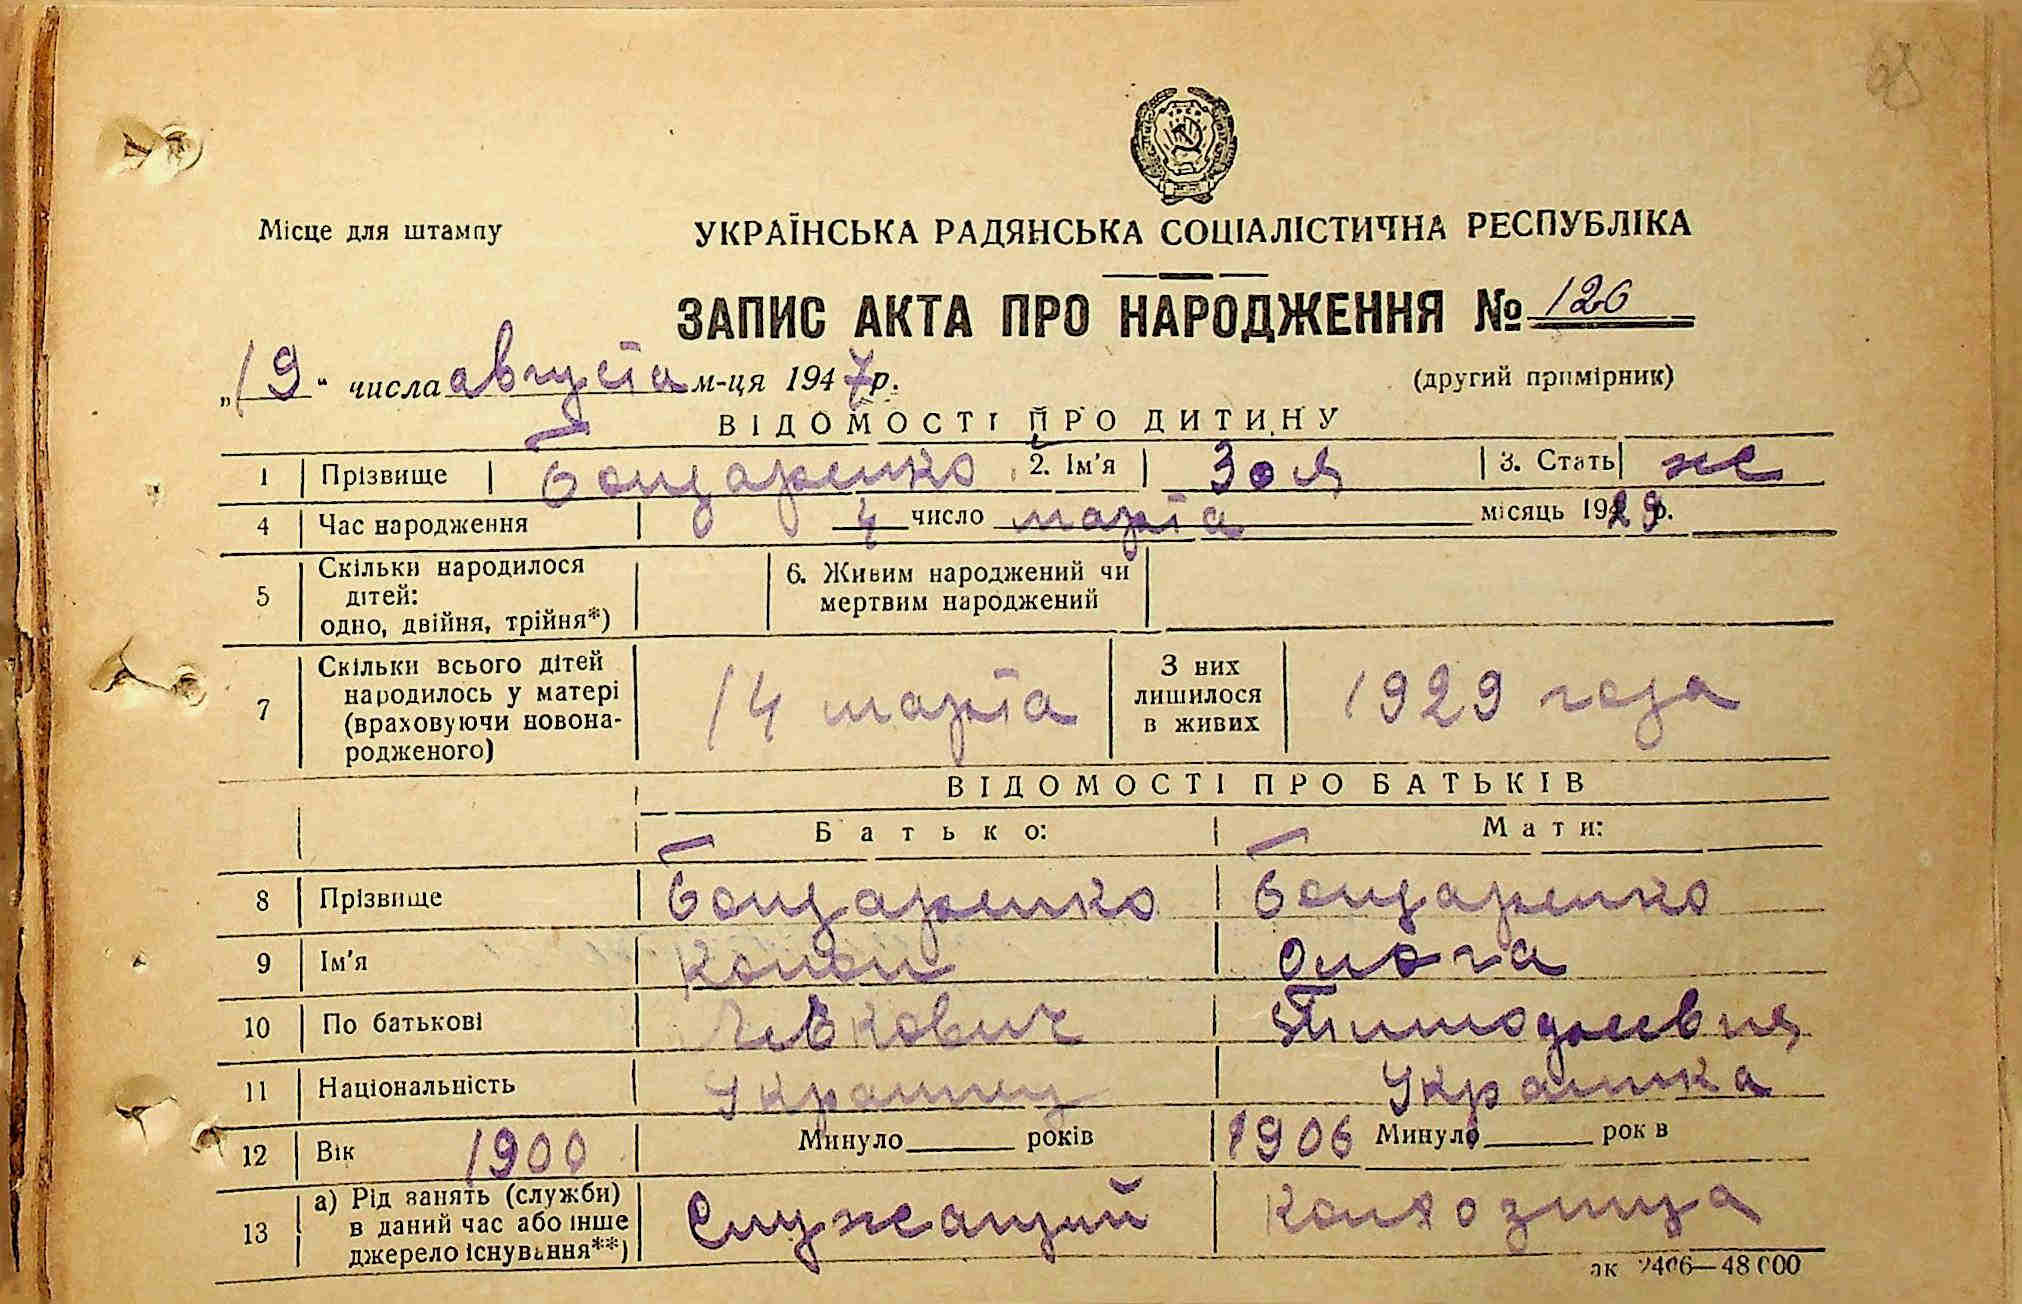 Місце для штампу
УКРАЇНСЬКА РАДЯНСЬКА СОЦІАЛІСТИЧНА РЕСПУБЛІКА
ЗАПИС АКТА ПРО НАРОДЖЕННЯ № 126
„19" числа августа м-ця 1947 р.
(другий примірник)
ВІДОМОСТІ ПРО ДИТИНУ
1 Прізвище Бондаренко 2. Ім'я Зоя 3. Стать же
4 Час народження 4 число марта місяць 1929 р.
5 Скільки народилося дітей: одно, двійня, трійня*) 6. Живим народжений чи мертвим народжений
7 Скільки всього дітей народилось у матері (враховуючи новонародженого) 14 марта З них лишилося в живих 1929 года
ВІДОМОСТІ ПРО БАТЬКІВ
Батько: Мати:
8 Прізвище Бондаренко Бондаренко
9 Ім'я Конон Ольга
10 По батькові Левкович
11 Національність Украинец Украинка
12 Вік 1900 Минуло років 1906 Минуло рок в
13 а) Рід занять (служби) в даний час або інше джерело існування**) Служащий Колхозница
ак 2406—48 000